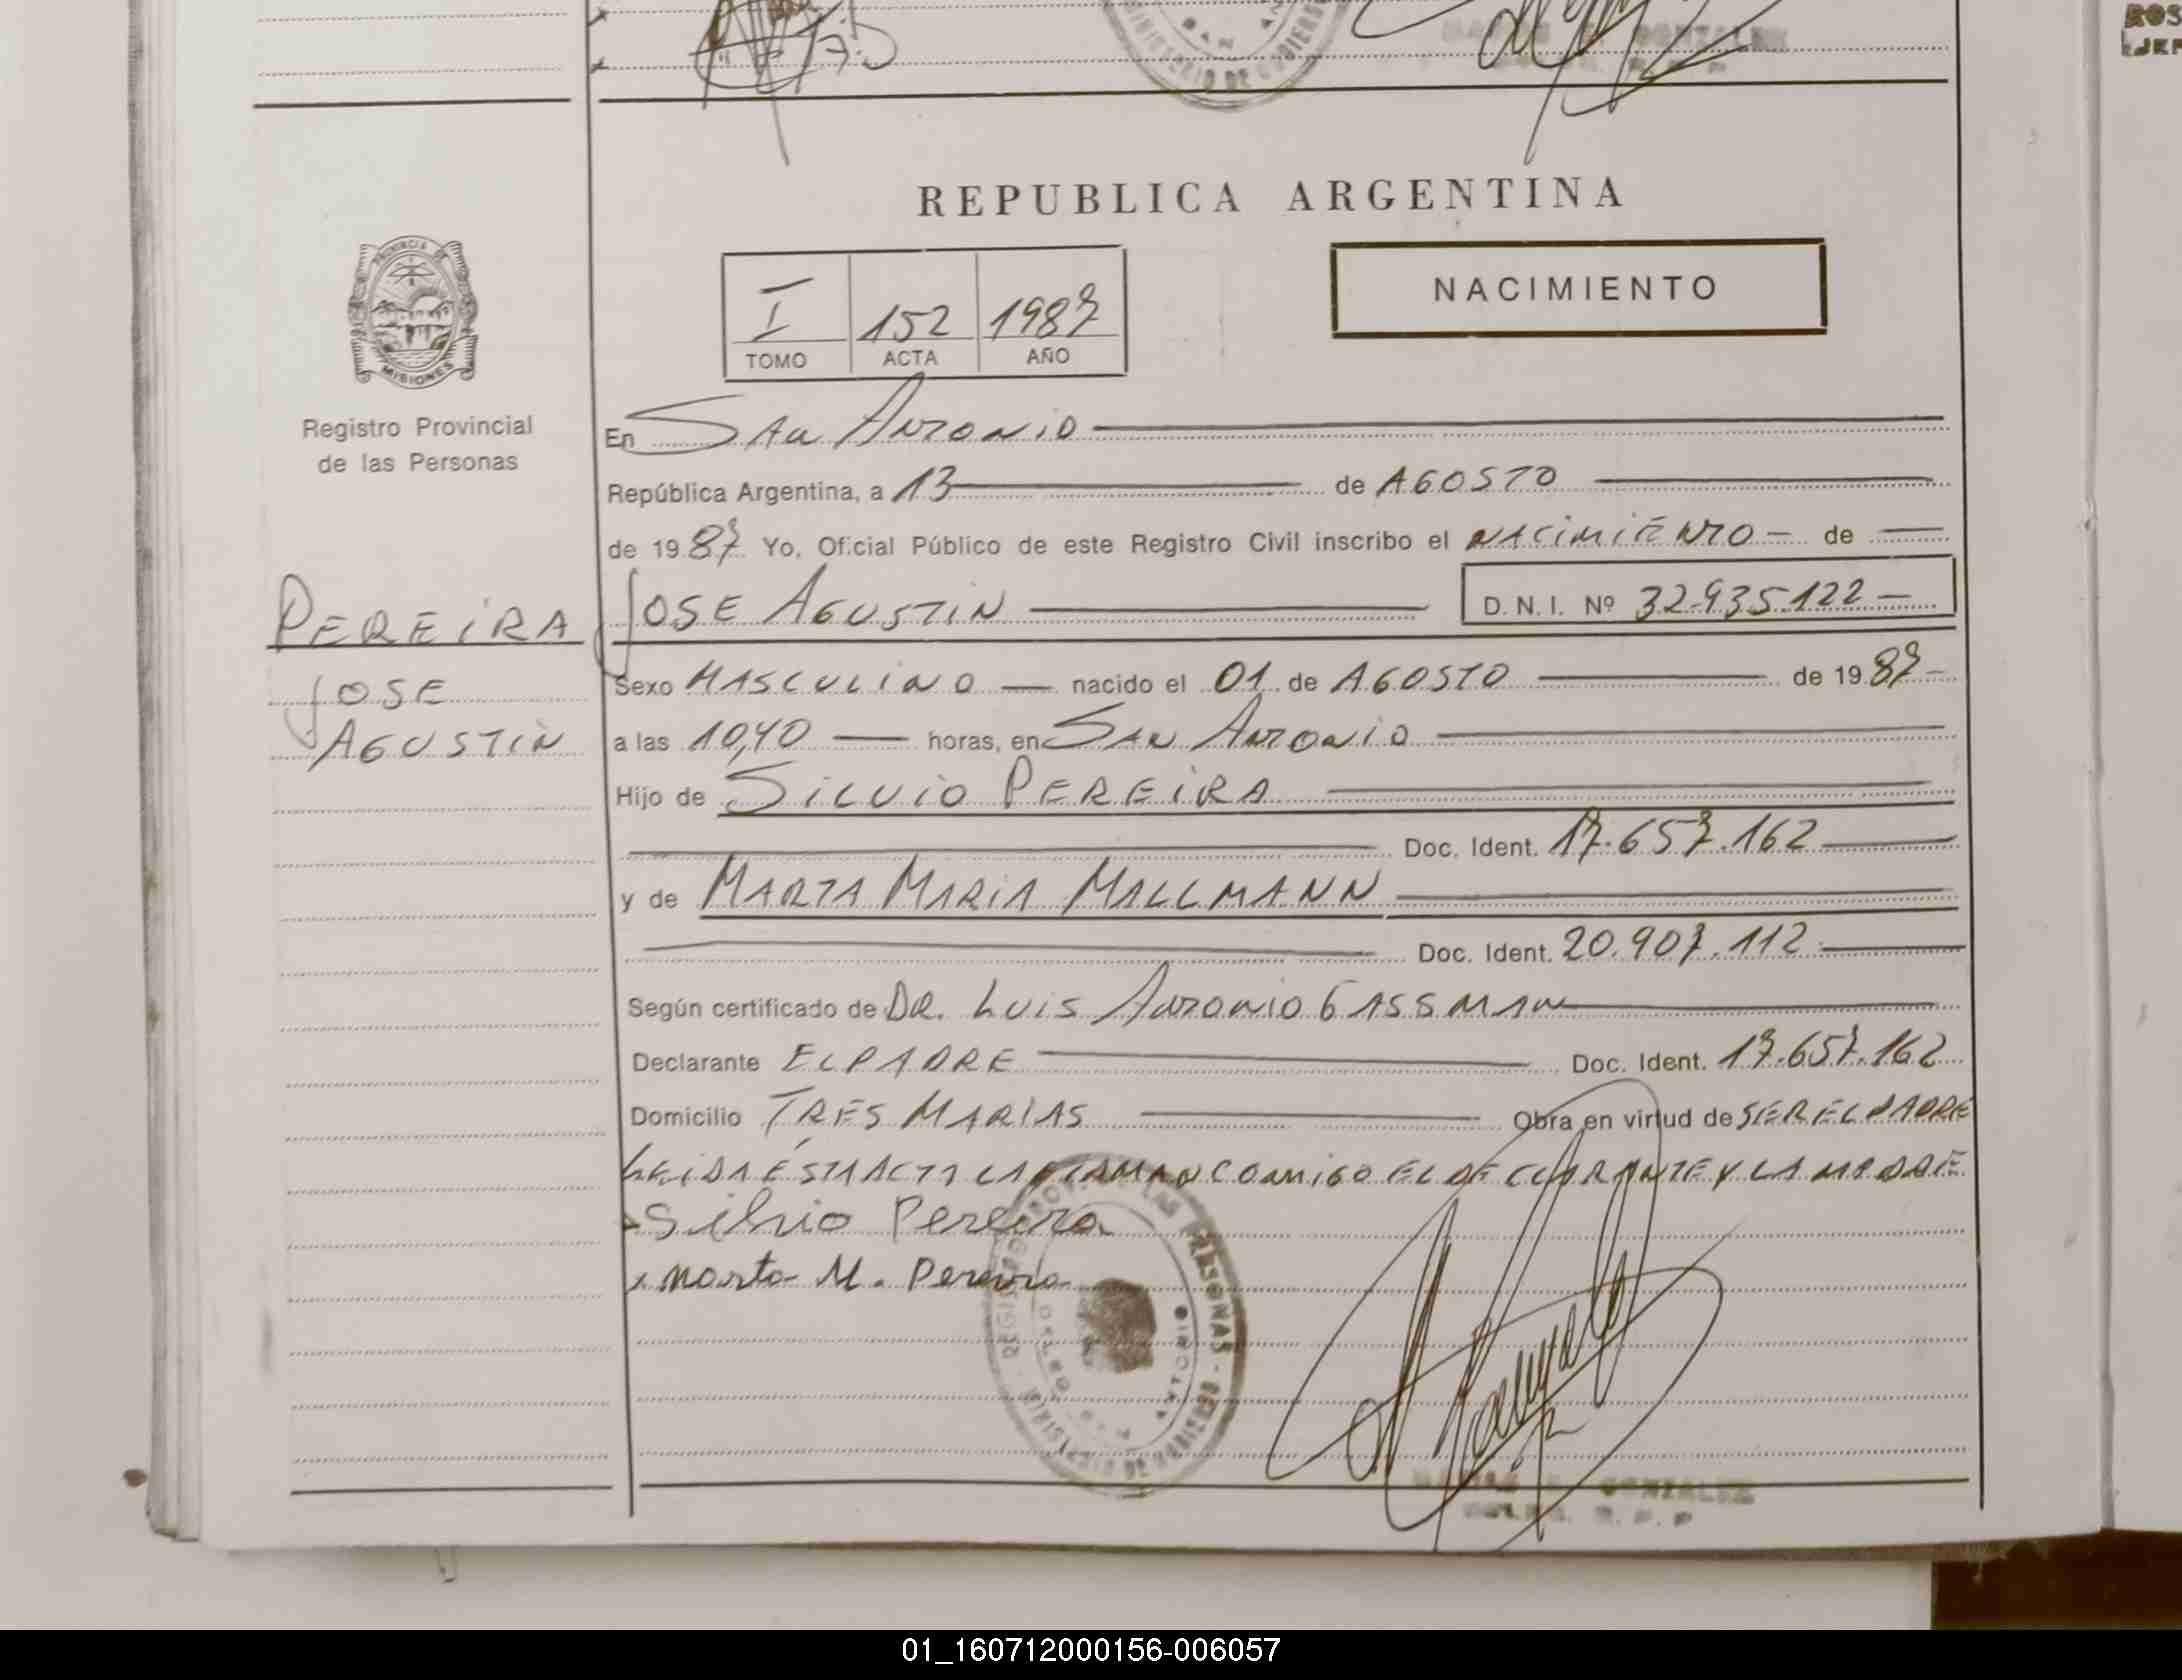 REPUBLICA ARGENTINA
PROVINCIA DE
MISIONES
Registro Provincial
de las Personas
I 152 1987
TOMO ACTA AÑO
NACIMIENTO
En San Antonio
República Argentina, a 13 de AGOSTO
de 1987 Yo, Oficial Público de este Registro Civil inscribo el NACIMIENTO - de
PEREIRA JOSE AGUSTIN D. N. I. Nº 32.935.122 -
JOSE
AGUSTIN
Sexo MASCULINO nacido el 01 de AGOSTO de 1987 -
a las 10,40 horas, en San Antonio
Hijo de SILVIO PEREIRA
Doc. Ident. 17.657.162
y de MARTA MARIA MALLMANN
Doc. Ident. 20.907.112
Según certificado de DR. LUIS ANTONIO GASSMAN
Declarante EL PADRE Doc. Ident. 17.657.162
Domicilio TRES MARIAS Obra en virtud de SER EL PADRE
LEIDA ESTA ACTA LA FIRMAN COMIGO EL DECLARANTE Y LA MADRE
Silvio Pereira
x Marta M. Pereira
GONZALEZ
R. P. P
01_160712000156-006057